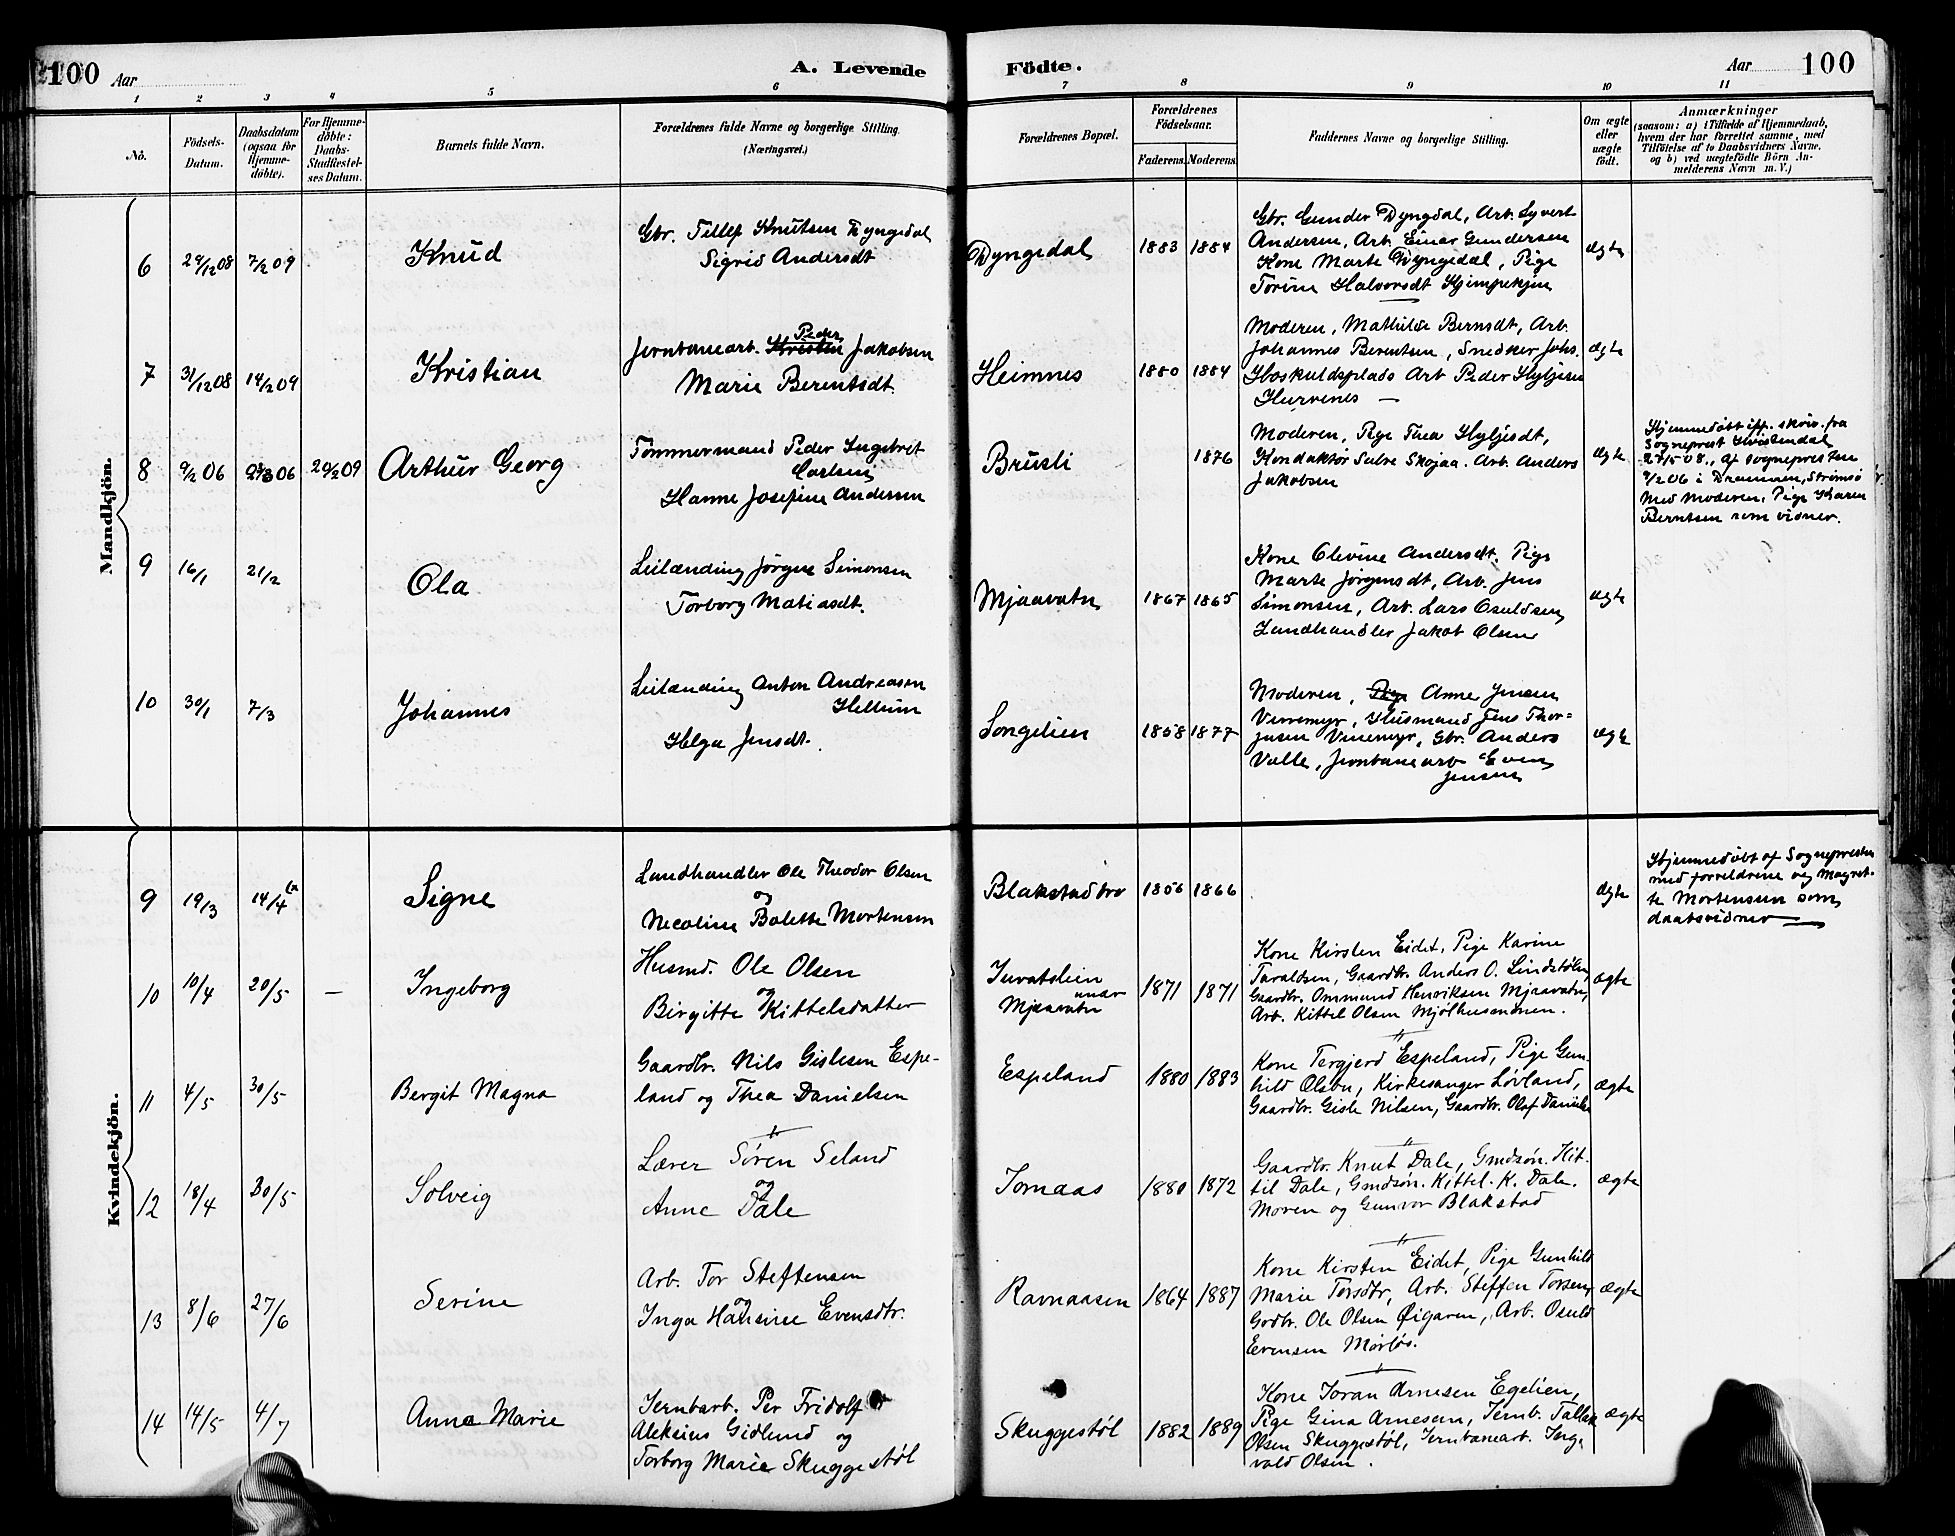 100 Aar A. Levende Fødte. Aar 100
1 2 3 4 5 6 7 8 9 10 11
No.
Fødsels-
Datum.
Daabsdatum
(ogsaa for
Hjemme-
døbte).
For Hjemme-
døbte:
Daabs-
Stadfæstel-
ses Datum.
Barnets fulde Navn.
Forældrenes fulde Navne og borgerlige Stilling.
(Næringsvei.)
Forældrenes Bopæl.
Forældrenes
Fødselsaar.
Faderens. Moderens.
Faddernes Navne og borgerlige Stilling.
Om ægte
eller
uægte
født.
Anmærkninger
(saasom: a) i Tilfælde af Hjemmedaab,
hvem der har forrettet samme, med
Tilføielse af to Daabsvidners Navne.
og b) ved uægtefødte Børn An-
melderens Navn m. V.)
Mandkjøn.
6 29/12 08 7/2 09 Knud
Gbr. Tellef Knutsen Dyngedal
Sigrid Andersdt
Dyngedal 1883 1884
Gbr. Gunder Dyngdal, Arb. Syvert
Andersen, Arb. Einar Gundersen
Kone Marte Dyngedal, Pige
Torine Halvorsdt Kjimpekjen
ægte
7 31/12 08 14/2 09 Kristian
Peder
Jernbanearb. Kristen Jakobsen
Marie Berentsdt.
Heimnes 1880 1884
Moderen, Mathilde Bernsdt, Arb.
Johannes Berentsen, Snedker Johs.
Hoskuldsplads Arb Peder
Hurvenes —
ægte
8 9/2 06 06 20/2 09 Arthur Georg
Tømmermand Peder Ingebret
Carlsen
Hanne Josefine Andersen
Brusli 1876
Moderen, Pige Thea
Konduktør Salve Skojaa. Arb. Anders
Jakobsen
ægte
Hjemmedøbt ifp. skriv. fra
Sogneprest Kristendal
27/5 08., af sognepresten
9/2 06 i Drammen, Strømsø
med moderen, Pige Karen
Berntsen som vidner.
9 16/1 21/2 Ola
Leilænding Jørgen Simonsen
Torborg Matiasdt.
Mjaavatn 1867 1865
Kone Olevine Andersdt. Pige
Marte Jørgensdt, Arb. Jens
Simonsen, Arb. Lars Osuldsen
Landhandler Jakob Olsen
ægte
10 30/1 7/3 Johannes
Leilænding Anton Andreasen
Hellum
Helga Jensdt.
Songelien 1858 1877
Moderen, Pige Anne Jensen
Verremyr, Husmand Jens Thor-
jusen Verremyr, Gbr. Anders
Valle, Jernbanearb Even
Jensen
ægte
Kvindekjøn.
9 19/3 14/4 Signe
Landhandler Ole Theodor Olsen
og
Nicoline Bolette Mortensen
Blakstadbro 1856 1866
ægte
Hjemmedøbt af Sognepresten
med forældrene og Magret-
te Mortensen som
daabsvidner —
10 10/4 20/5 — Ingeborg
Husmd. Ole Olsen
og
Birgitte Kittelsdatter
Juvatslien
under
Mjaavatn
1871 1871
Kone Kirsten Eidet, Pige Karine
Taraldsen, Gaardbr. Anders O. Lindstølen,
Gaardbr. Ommund Henriksen Mjaavatn,
Arb. Kittel Olsen Mjølhusmonen.
ægte
11 4/5 30/5 Bergit Magna
Gaardbr. Nils Gislesen Espe-
land og Thea Danielsen
Espeland 1880 1883
Kone Tergjerd Espeland, Pige Gun-
hild Olsen, Kirkesanger Løvland,
Gaardbr. Gisle Nilsen, Gaardbr. Olaf Daniels
ægte
12 18/4 30/5 Solveig
Lærer Søren Seland
og
Anne Dale
Tomaas 1880 1872
Gaardbr. Knut Dale, Gmdsøn. Kit-
til Dale, Gmdsøn. Kittel. K. Dale.
Moren og Gunvor Blakstad
ægte
13 8/6 27/6 Serine
Arb. Tor Steffensen
og
Inga Hansine Evensdtr.
Ravnaasen 1864 1887
Kone Kirsten Eidet, Pige Gunhild
Marie Torsdtr, Arb. Steffen Torsen,
Grdbr. Ole Olsen Øigaren, Arb. Osuld
Evensen Morløs.
ægte
14 14/5 4/7 Anna Marie
Jernbarb. Per Fridolf
Aleksius Gidlund og
Torborg Marie Skuggestøl
Skuggestøl 1882 1889
Kone Joran Arnesen Egelien,
Pige Gina Arnesen, Jernb. Tallak
Olsen Skuggestøl, Jernbanearb. Ing-
vald Olsen.
ægte